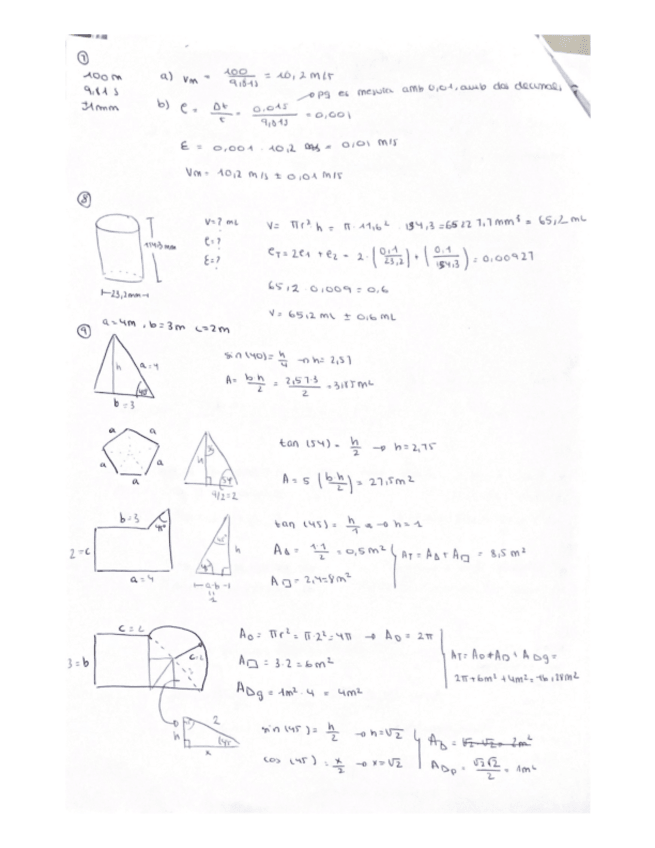 7
100m
9,81s
31mm
a) Vm = 100/9,81s = 10,2 m/s
b) e = Δt/t = 0,01s/9,81s = 0,001
pq es mesura amb 0,01, amb dos decimals
E = 0,001 · 10,2 = 0,01 m/s
Vm = 10,2 m/s ± 0,01 m/s
8
154,3 mm
23,2mm
V=? mL
e=?
E=?
V= πr²h = π·11,6²·154,3=65227,7mm³ = 65,2mL
eT=2e1+e2 = 2·(0,1/23,2)+(0,1/154,3)=0,00927
65,2·0,009=0,6
V= 65,2mL ± 0,6mL
9 a=4m, b=3m c=2m
h a=4
40°
b=3
sin(40)=h/4 → h=2,57
A= b·h/2 = 2,57·3/2 =3,85m²
a a
a a
a
h 54
4/2=2
tan(54)= h/2 → h=2,75
A=5(b·h/2)=27,5m²
b=3
45°
2=c
a=4
45°
h
45°
a-b=1
1
tan(45)= h/1 → h=1
A△= 1·1/2 =0,5m²
A▭= 2·4=8m²
AT=A△+A▭ = 8,5m²
c=2
3=b
c=2
Ao= πr²=π·2²=4π → AD=2π
A▭= 3·2=6m²
A△g=1m²·4=4m²
AT=AD+A▭+A△g=
2π+6m²+4m²=16,28m²
2
h
45
x
sin(45)= h/2 → h=√2
cos(45)= x/2 → x=√2
A△ = √2·√2= 2m²
A△p= √2·√2/2 = 1m²